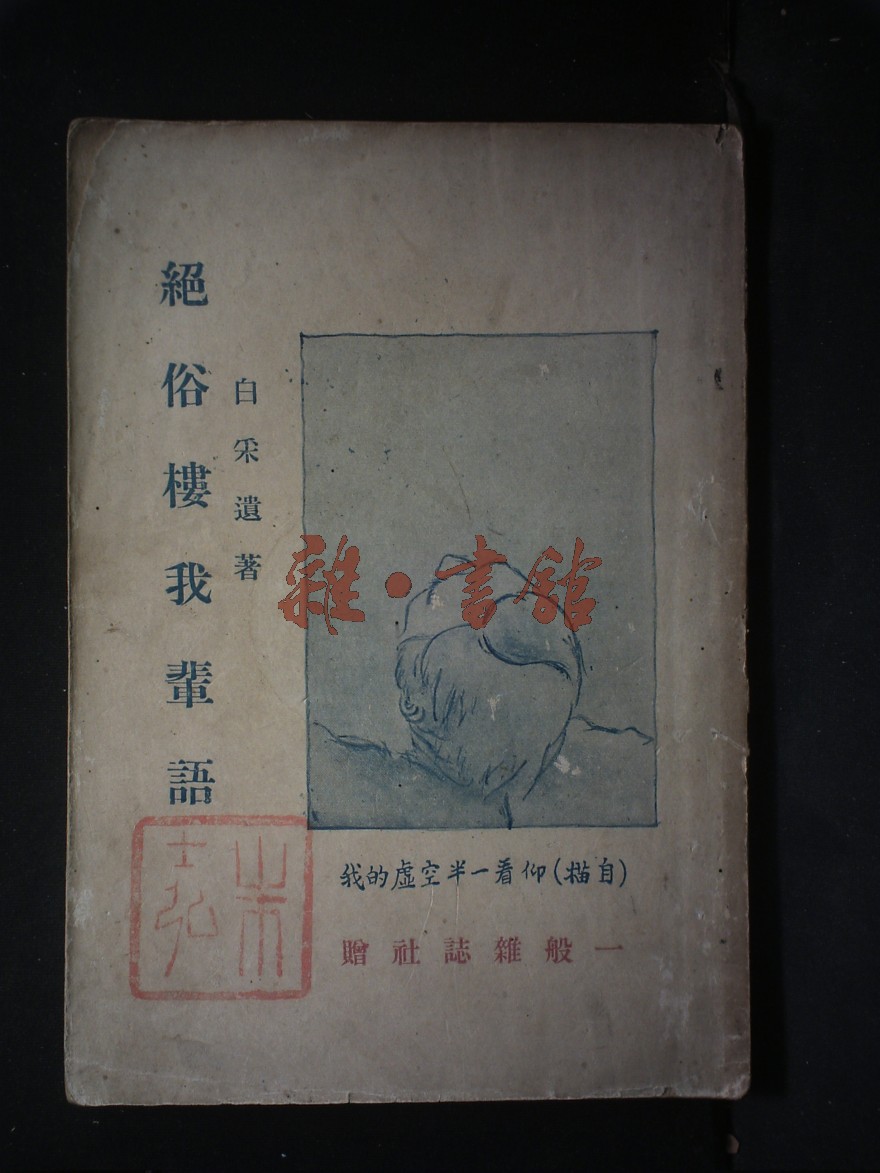 絕俗樓我輩語
白采遺著
雜·書館
(自描)仰看一半空虛的我
一般雜誌社贈